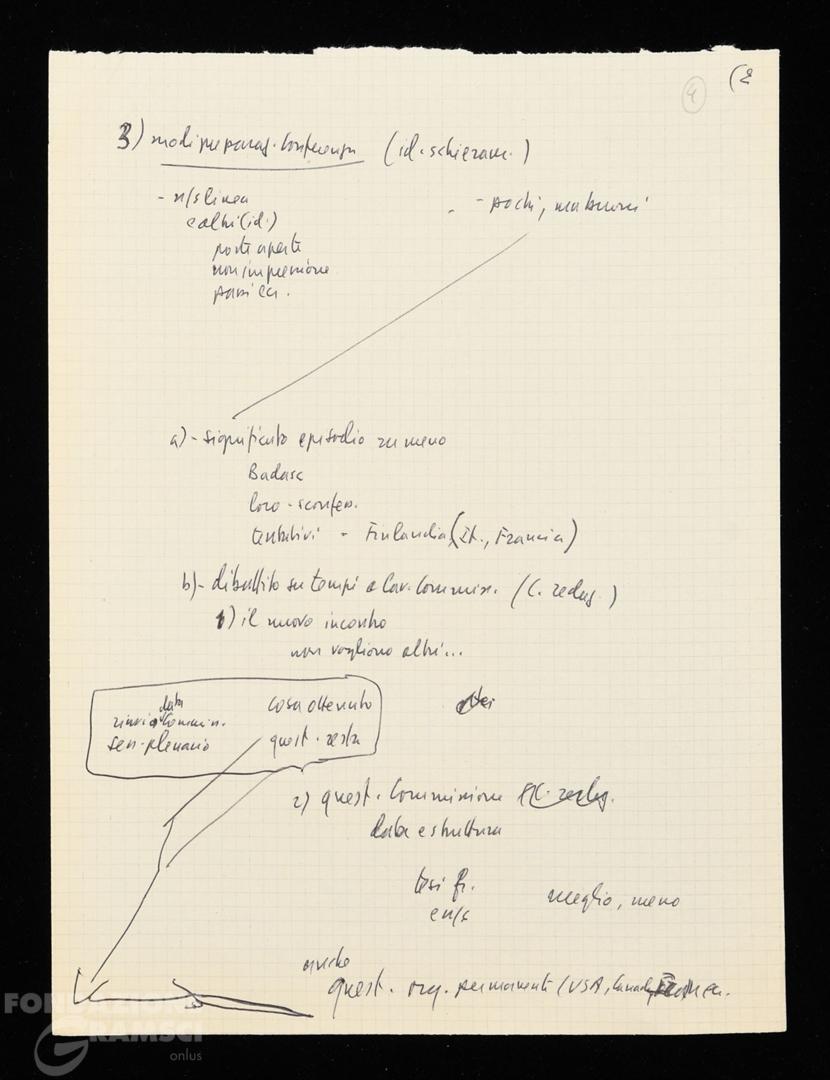 (2
4
3) modi preparaz. Conferenza (id. schieram.)
- n/s linea
- pochi, ma buoni
e altri (id.)
porte aperte
non impressione
a) - significato episodio rumeno
loro - sconten.
tentativi - Finlandia, (It., Francia)
b) - dibattito su tempi e lav. Commiss. (C. redaz.)
1) il nuovo incontro
non vogliono altri...
data
rinvio Commiss.
cosa ottenuto
plenario
quest. resta
2) quest. Commissione (C. redaz.
data e struttura
tesi fr.
e n/s
meglio, meno
anche
quest. org. permanente (USA, Canada,
FONDAZIONE
GRAMSCI
onlus